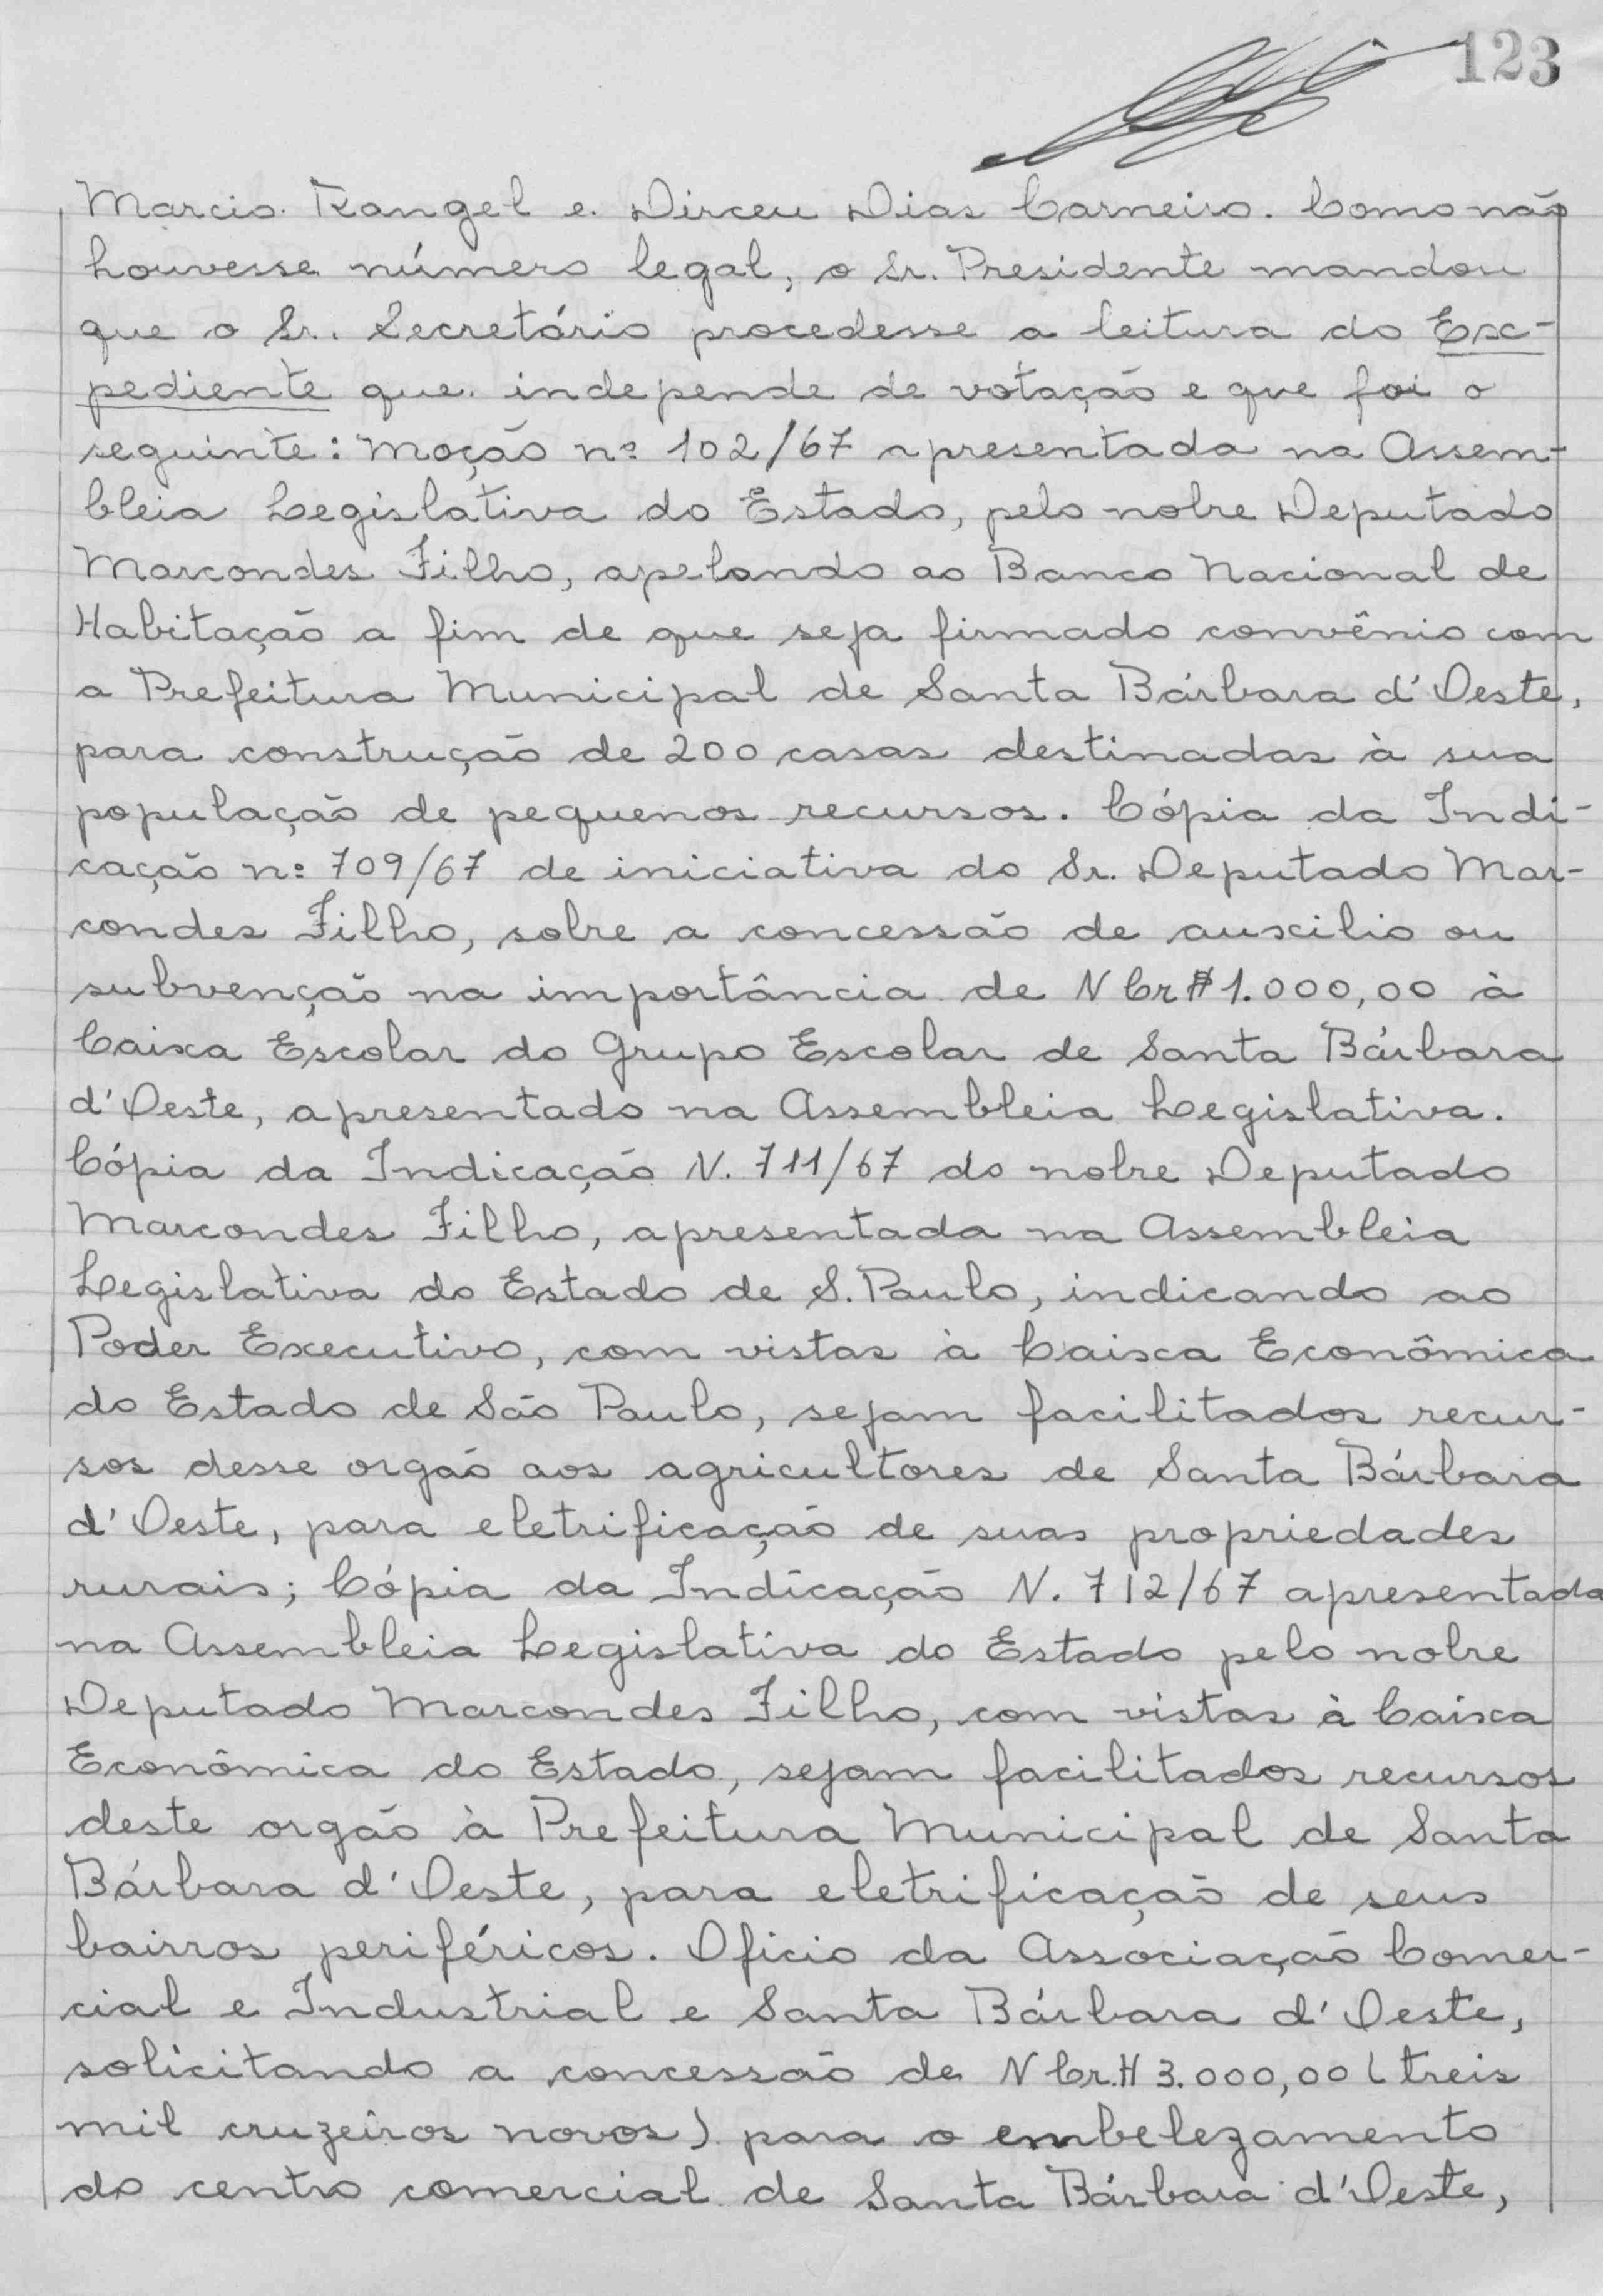 123
Marcio Rangel e Dirceu Dias Carneiro. Como não
houvesse número legal, o Sr. Presidente mandou
que o Sr. Secretário procedesse a leitura do Ex-
pediente que independe de votação e que foi o
seguinte: Moção nº 102/67 apresentada na Assem-
bleia Legislativa do Estado, pelo nobre Deputado
Marcondes Filho, apelando ao Banco Nacional de
Habitação a fim de que seja firmado convênio com
a Prefeitura Municipal de Santa Bárbara d'Oeste,
para construção de 200 casas destinadas à sua
população de pequenos recursos. Cópia da Indi-
cação nº 709/67 de iniciativa do Sr. Deputado Mar-
condes Filho, sobre a concessão de auxilio ou
subvenção na importância de NCr$ 1.000,00 à
Caixa Escolar do Grupo Escolar de Santa Bárbara
d'Oeste, apresentado na Assembleia Legislativa.
Cópia da Indicação N. 711/67 do nobre Deputado
Marcondes Filho, apresentada na Assembleia
Legislativa do Estado de S. Paulo, indicando ao
Poder Executivo, com vistas à Caixa Econômica
do Estado de São Paulo, sejam facilitados recur-
sos desse orgão aos agricultores de Santa Bárbara
d'Oeste, para eletrificação de suas propriedades
rurais; Cópia da Indicação N. 712/67 apresentada
na Assembleia Legislativa do Estado pelo nobre
Deputado Marcondes Filho, com vistas à Caixa
Econômica do Estado, sejam facilitados recursos
deste orgão à Prefeitura Municipal de Santa
Bárbara d'Oeste, para eletrificação de seus
bairros periféricos. Oficio da Associação Comer-
cial e Industrial e Santa Bárbara d'Oeste,
solicitando a concessão de NCr.$ 3.000,00 (treis
mil cruzeiros novos) para o embelezamento
do centro comercial de Santa Bárbara d'Oeste,